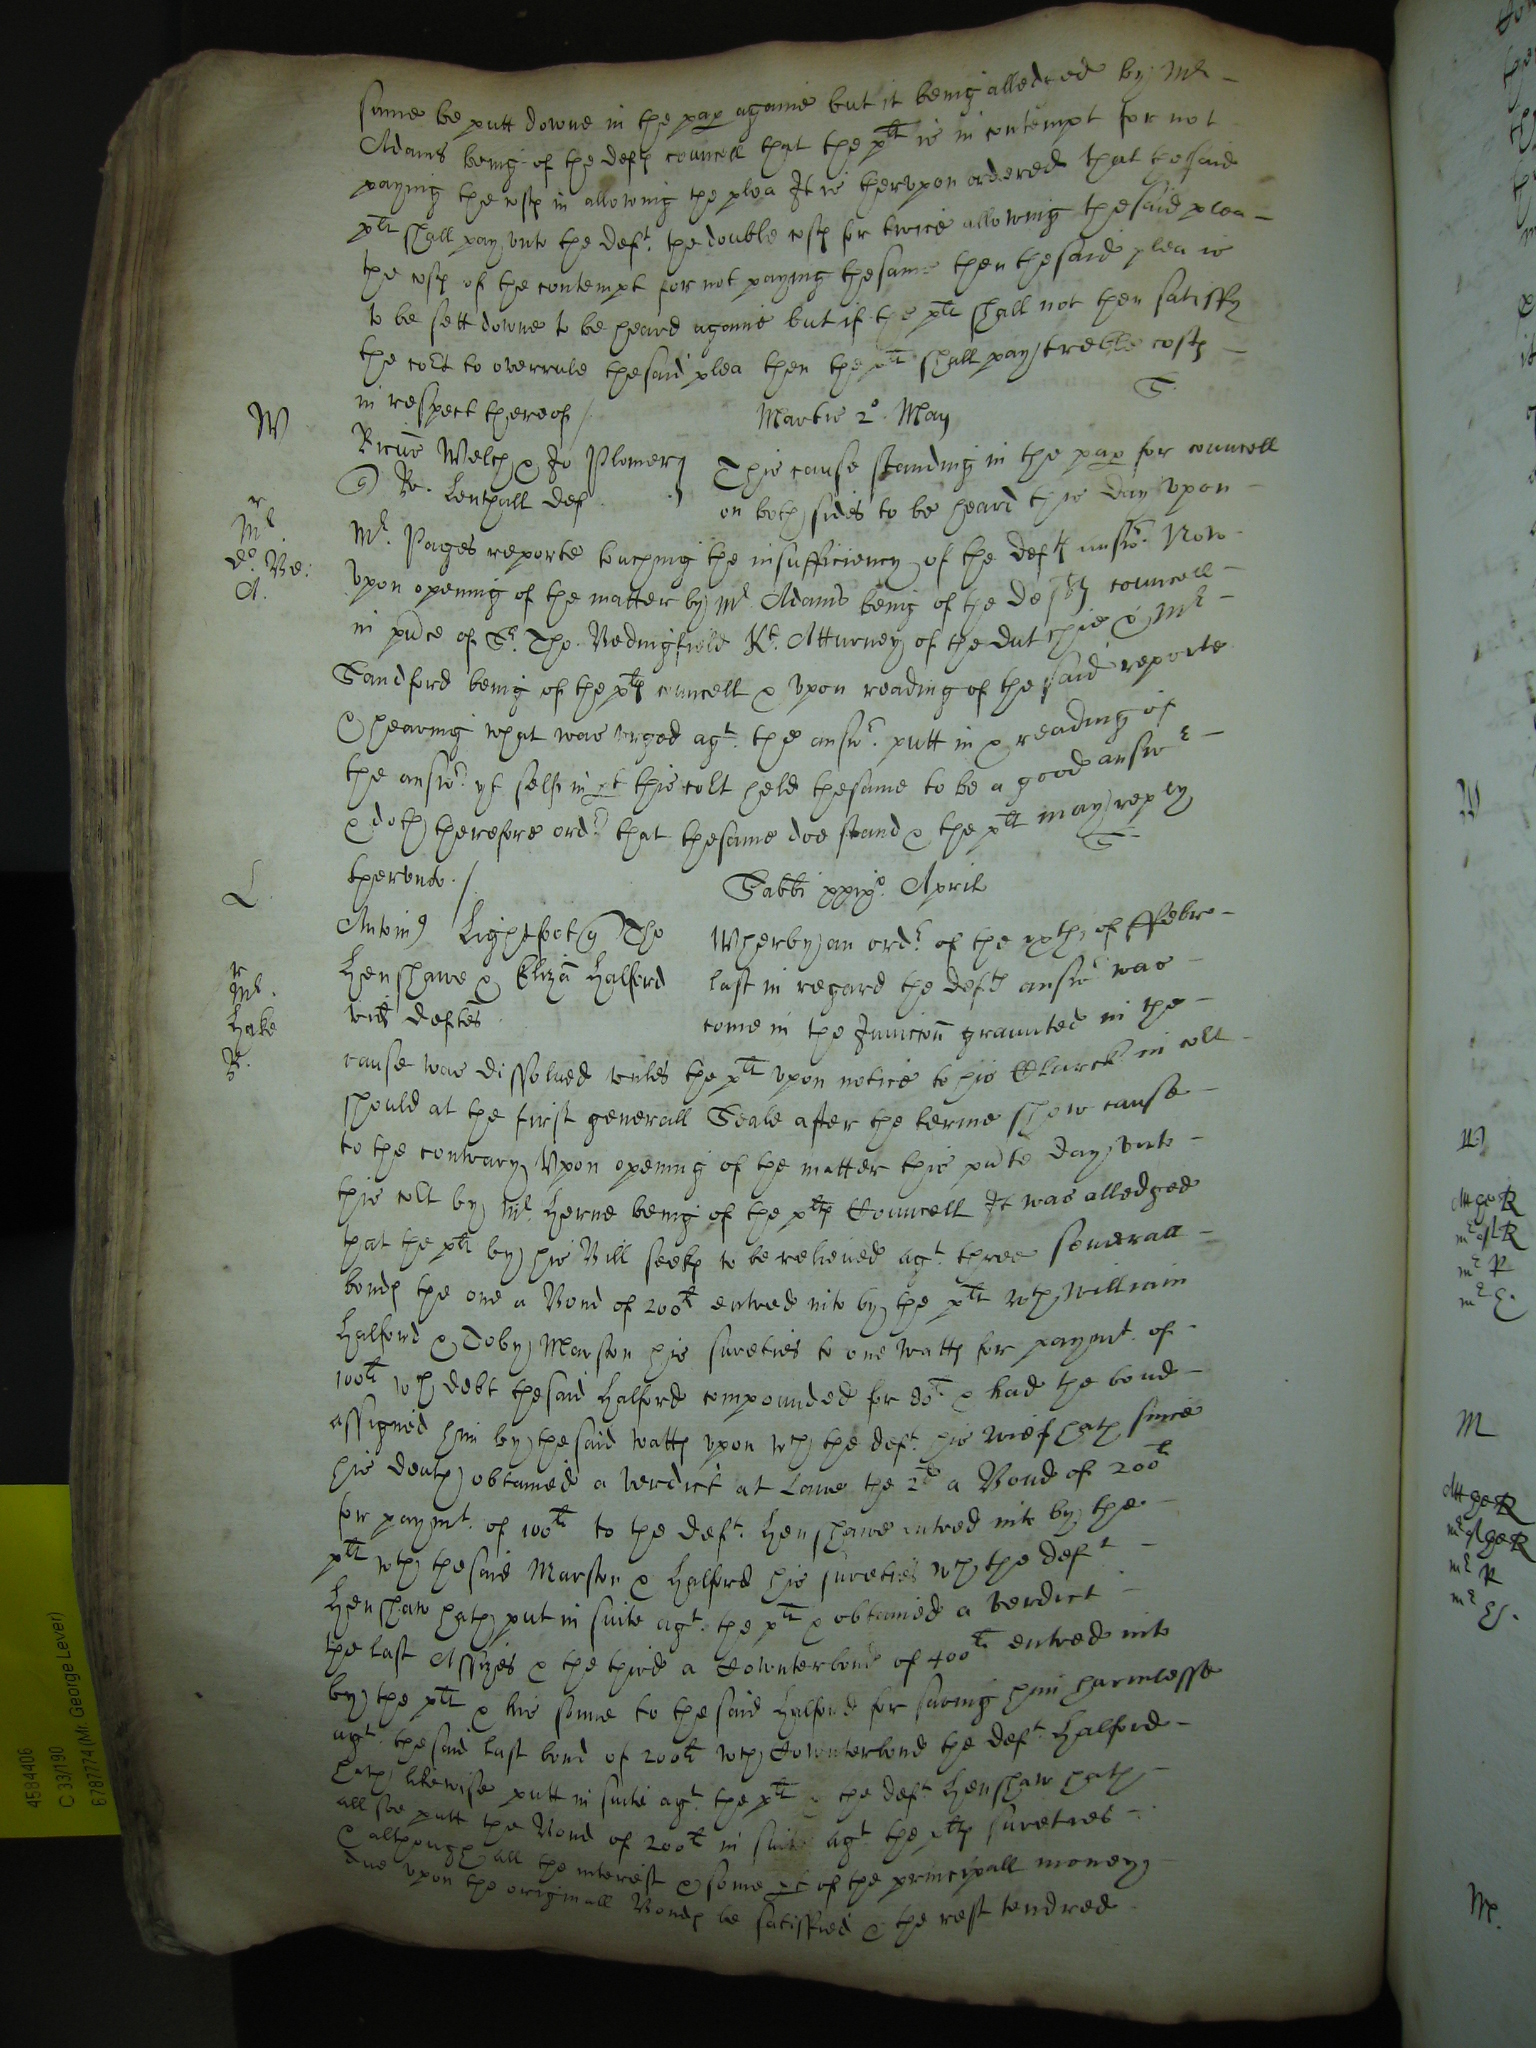 same be putt downe in the pap againe but it being alledged by Mr
Adams being of the defts councell that the plt is in contempt for not
paying the costs in allowing the plea It is thervpon ordered that the said
plt shall pay vnto the deft. the double costs for twice allowing the said plea
the costs of the contempt for not paying the same then the said plea is
to be sett downe to be heard againe but if the plt shall not then satisfy
the cort to overrule the said plea then the plt shall pay treble costs
in respect thereof /
Martis 2o May
W
Welch & Jo Plomer
Ro. Lenthall def
This cause standing in the pap for councell
on both sides to be heard this day vpon
Mr. Pages reporte touching the insufficiency of the defts answr. Now
vpon opening of the matter by Mr Adams being of the defts councell
in pnce of Sr. Tho. Bedingfield Kt. Atturney of the dutchie & Mr
Sandford being of the plts councell & vpon reading of the said reporte
& hearing what was vrged agt. the answr. putt in & reading of
the answr. yt self in pt this cort held the same to be a good answr
& doth therefore ordr that the same doe stand & the plt may reply
thervnto. /
Sabbi xxixo. April
L.
Lightfoot Tho
Henshawe & Eliza Halford
vid deftes
Wherby an ordr. of the xxth of ffebr
last in regard the defts answr was
come in the Iniuccon graunted in the
cause was dissolued vnles the plt vpon notice to his Clarck in cort
should at the first generall Seale after the terme show cause
to the contrary Vpon opening of the matter this pnte day vnto
this cort by Mr. Herne being of the plts Councell It was alledged
that the plt by his Bill seeks to be relieued agt. three seuerall
bonds the one a Bond of 200li entred into by the plt wth William
Halford & Toby Marston his sureties to one Watts for paymt. of
100li wch debt the said Halford compounded for 80li & had the bond
assigned him by the said Watts vpon wch the deft. his wief hath since
his death obtained a verdict at Lawe the 2d a Bond of 200li
for paymt. of 100li to the deft. Henshawe entred into by the
plt wth the said Marston & Halford his sureties wch the deft
Henshaw hath put in suite agt. the plt & obtained a verdict
the last Assizes & the third a Counterbond of 400li entred into
by the plt & his sonne to the said Halford for saving him harmlesse
agt. the said last bond of 200li wch Counterbond the deft. Halford
hath likewise putt in suite agt. the plt & the deft. Henshaw hath
allsoe putt the Bond of 200li in suite agt the plts sureties
& although all the interest & some pt of the principall money
due vpon the originall Bonds be satisfied & the rest tendred
4584406
C 33/190
6787774 (Mr. George Lever)